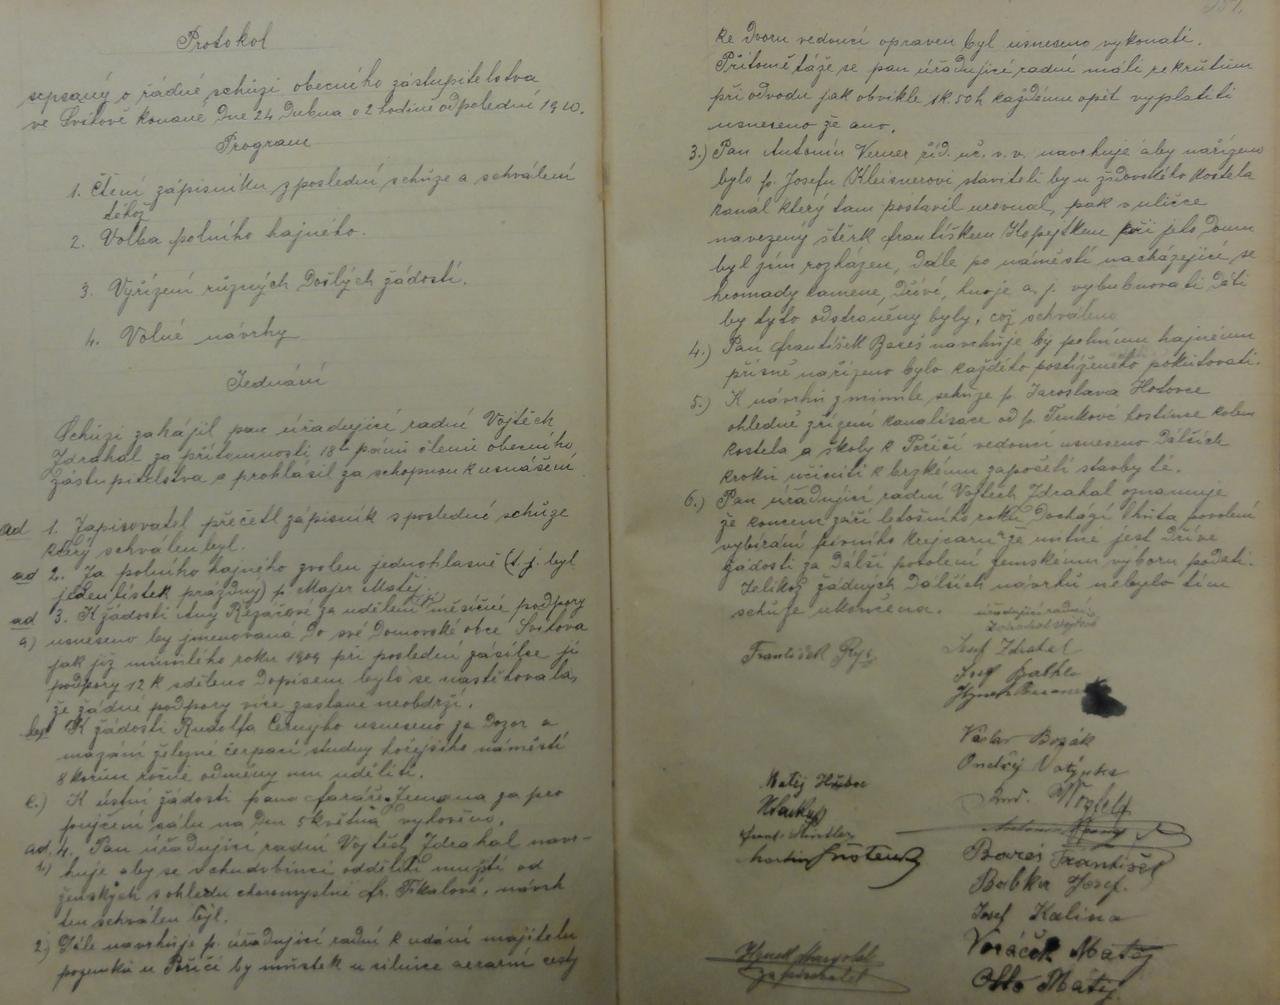 Protokol
sepsaný o řádné schůzi obecního zástupitelstva
ve Svitově konané Dne 24 Dubna o 2 hodině odpolední 1910.
Program
1. Čtení zápisníku z poslední schůze a schválení
téhož
2. Volba polního hajného.
3. Vyřízení různých Došlých žádostí.
4. Volné návrhy
Jednání
Schůzi zahájil pan úřadující radní Vojtěch
Zdrahal za přítomnosti 18ti pánů členů obecního
zástupitelstva a prohlásil za schopnou k usnášení
ad 1. Zapisovatel přečetl zápisník s poslední schůze
který schválen byl.
ad 2. Za polního hajného zvolen jednohlasně (t. j. byl
jeden lístek prázdný) p. Majer Matěj
ad 3. K žádosti Any Řezáčové za udělení měsíčné podpory
a) usneseno by jmenovaná Do své Domovské obce Svitova
jak již minulého roku 1909 při poslední zásilce jí
podpory 12 K sděleno Dopisem bylo se nastěhovala,
že žádné podpory více zaslané neobdrží.
K žádosti Rudolfa Černýho usneseno za Dozor a
mazání železné čerpací studny hořejšího náměstí
8 korun ročně odměny mu uděliti.
c.) K ústní žádosti pana faráře Zemana za pro
pujčení sálu na Den 5 května vyhověno.
ad. 4. Pan úřadující radní Vojtěch Zdrahal navr-
1.) huje aby se v chudobinci oddělili mužští od
ženských s ohledu choromyslné Fr. Tikalové, návrh
ten schválen byl.
2) Dále navrhuje p. úřadující radní k udání majitelu
pozemků u Poříčí by můstek u silnice aerarní cesty
ke dvoru vedoucí opraven byl usneseno vykonati.
Přítomě táže se pan úřadující radní máli rekrůtům
při odvodu jak obvikle 1K.50h každému opět vyplatiti
usneseno že ano.
3.) Pan Antonín Verner říd. uč. v. v. navrhuje aby nařízeno
bylo p. Josefu Kleisnerovi staviteli by u židovského kostela
kanál který tam postavil urovnal, pak v uličce
navezený štěrk Františkem Kopejtkem při jeho Domu
byl jím rozházen, Dále po náměstí nacházející se
hromady kamene, Dříví, hnoje a. j. vybubnovati Dáti
by tyto odstraněny byly, což schváleno
4.) Pan František Bareš navrhuje by polnímu hajnému
přísně nařízeno bylo každého postiženého pokutovati.
5.) K návrhu z minule schůze p. Jaroslava Hotovce
ohledně zřízení kanalisace od p. Trnkové hostince kolem
kostela a školy k Poříčí vedoucí usneseno Dalších
kroků učiniti k brzkému započetí stavby té.
6.) Pan úřadující radní Vojtěch Zdrahal oznamuje
že koncem září letošního roku Dochází lhůta povolení
vybírání pivního krejcaru že nutné jest Dříve
žádosti za Další povolení zemskému výboru podati.
Jelikož žádných Dalších návrhů nebylo tím
schůze ukončena.
úřadující radní
Zdrahal Vojtěch
František
Josef Zdrahal
Josef
Václav Bozák
Ondřej
Matěj
Antonín
Martin
Bareš František
Babka Josef.
Josef Kalina
Voráček Matěj
Otto Matěj
Hynek
zapisovatel